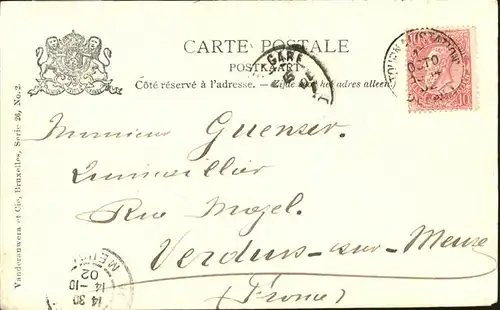 CARTE POSTALE
POSTKAART
Côté réservé à l'adresse. — Zijde het adres alleen
GARE
TOURNAI (STATION)
10
Vanderauwera et Cie, Bruxelles, Serie 26, No. 2.
Monsieur Guenser
Quincaillier
Rue Mozel.
Verdun-sur-Meuse
(France)
MEU
02
14-10
14 30